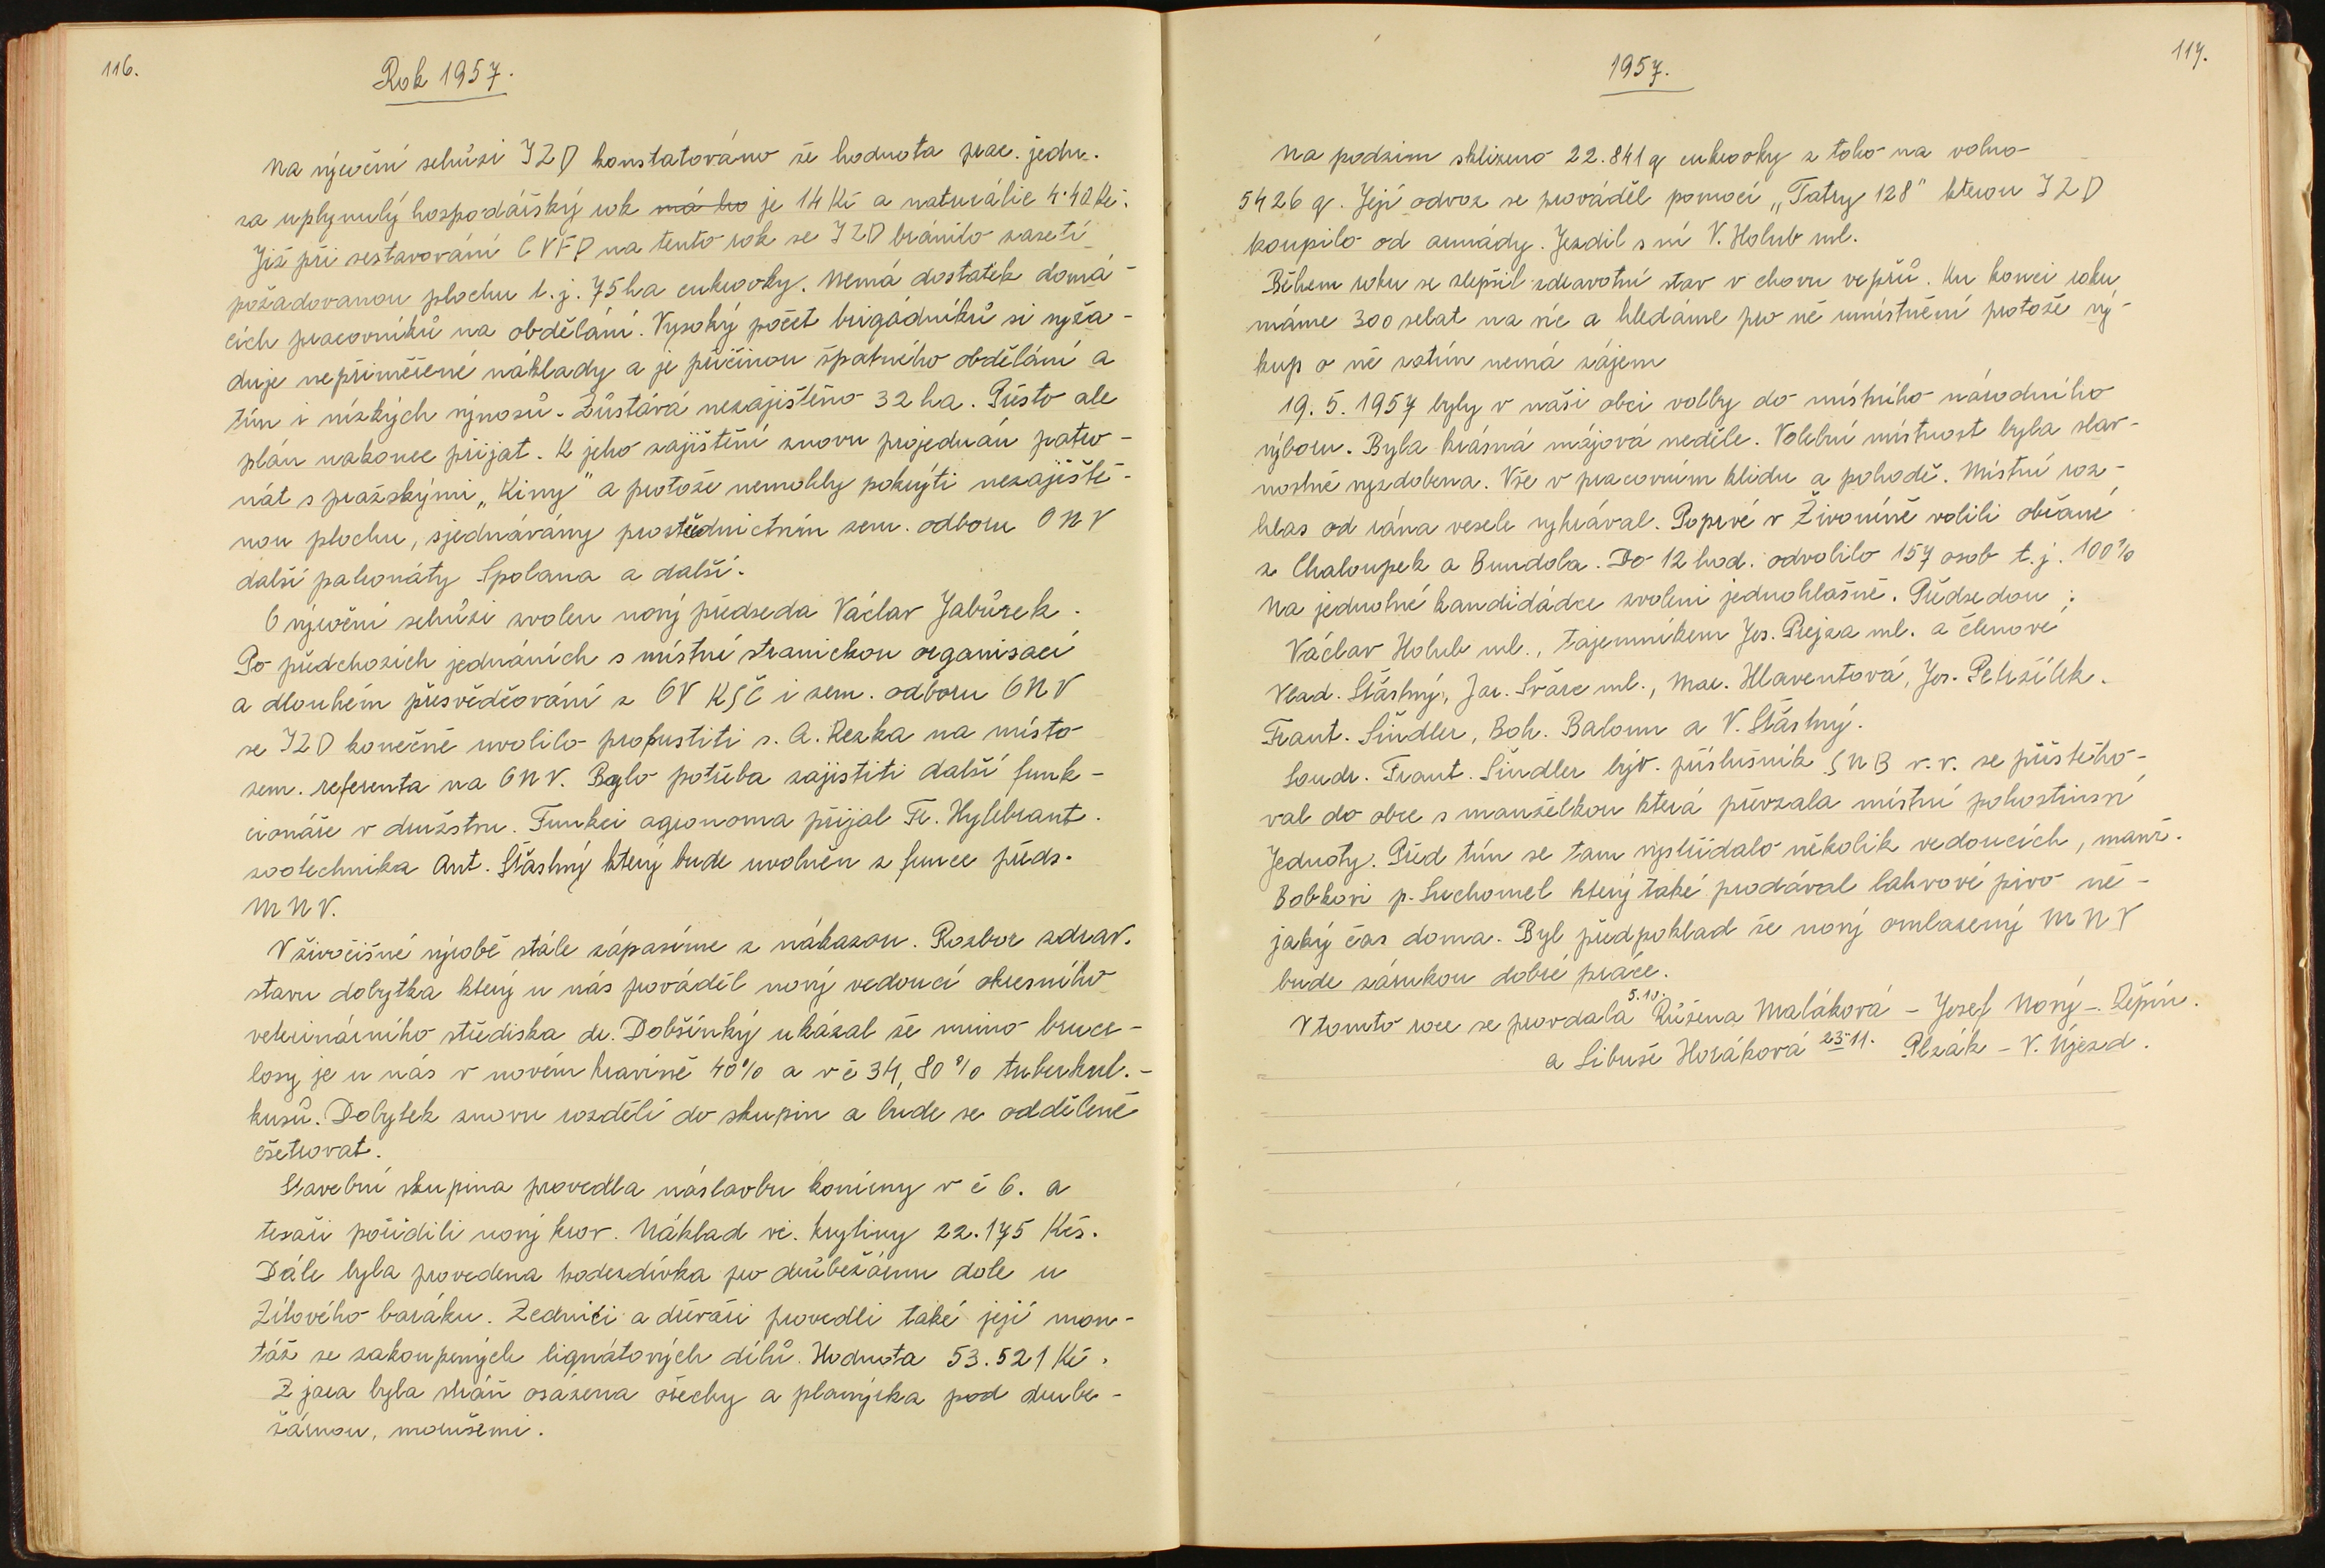 116.
Rok 1957.
Na výroční schůzi JZD konstatováno že hodnota prac. jedn.
za uplynulý hospodářský rok má ho je 14 Kč a naturálie 4·40 Kč.
Již při sestavování CVFP na tento rok se JZD bránilo zaseti
požadovanou plochu t.j. 75 ha cukrovky. Nemá dostatek domá-
cích pracovníků na obdělání. Vysoký počet brigádníků si vyža-
duje nepřiměřené náklady a je příčinou špatného obdělání a
tím i nízkých výnosů. Zůstává nezajištěno 32 ha. Přesto ale
plán nakonec přijat. K jeho zajištění znovu projednán patro-
nát s pražskými „Kiny" a protože nemohly pokrýti nezajiště-
nou plochu, sjednávány prostřednictvím zem. odboru ONV
další patronáty Spolana a další.
O výroční schůzi zvolen nový předseda Václav Jabůrek.
Po předchozích jednáních s místní stranickou organisací
a dlouhém přesvědčování z OV KSČ i zem. odboru ONV
se JZD konečně uvolilo propustiti s. A. Rezka na místo
zem. referenta na ONV. Bylo potřeba zajistiti další funk-
cionáře v družstvu. Funkci agronoma přijal Fr. Hylebrant.
zootechnika Ant. Šťastný který bude uvolněn z funce předs.
MNV.
V živočišné výrobě stále zápasíme z nákazou. Rozbor zdrav.
stavu dobytka který u nás prováděl nový vedoucí okresního
veterinárního střediska dr. Dobšínký ukázal že mimo bruce-
losy je u nás v novém kravíně 40% a v č 34, 80% tuberkul.-
kusů. Dobytek znovu rozdělí do skupin a bude se odděleně
ošetřovat.
Stavební skupina provedla nástavbu konírny v č 6. a
tesaři pořídili nový krov. Náklad vč. krytiny 22.175 Kčs.
Dále byla provedena podezdívka pro drůbežárnu dole u
Zítového baráku. Zedníci a dřevaři provedli také její mon-
táž se zakoupených lignátových dílů. Hodnota 53.521 Kč.
Z jara byla stráň osázena ořechy a planýrka pod drube-
žárnou, morušemi.
117.
1957.
Na podzim sklizeno 22.841 q cukrovky z toho na volno
5426 q. Její odvoz se prováděl pomocí „Tatry 128" kterou JZD
koupilo od armády. Jezdil s ní V. Holub ml.
Během roku se zlepšil zdravotní stav v chovu vepřů. Ku konci roku
máme 300 selat na víc a hledáme pro ně umístnění protože vý-
kup o ně zatím nemá zájem
19. 5. 1957 byly v naši obci volby do místního národního
výboru. Byla krásná májová neděle. Volební místnost byla slav-
nostně vyzdobena. Vše v pracovním klidu a pohodě. Místní roz-
hlas od rána vesele vyhrával. Poprvé v Živoníně volili občané
z Chaloupek a Bundola. Do 12 hod. odvolilo 157 osob t.j. 100%
Na jednotné kandidádce zvoleni jednohlasně. Předsedou :
Václav Holub ml., tajemníkem Jos. Prejza ml. a členové
Vlad. Šťastný, Jar. Švárc ml., Mar. Hlaventová, Jos. Petržílek.
Frant. Šindler, Boh. Baloun a V. Šťastný.
Soudr. Frant. Šindler býv. příslušník SNB v.v. se přistěho-
val do obce s manželkou která převzala místní pohostinsví
Jednoty. Před tím se tam vystřídalo několik vedoucích, manž.
Bobkovi p. Suchomel který také prodával lahvové pivo ně-
jaký čas doma. Byl předpoklad že nový omlazený MNV
bude zárukou dobré práce.
V tomto roce se provdala 5.10. Růžena Maláková – Josef Nový –. Řepín.
a Libuše Horáková 23.11. Plzák – V. Újezd.